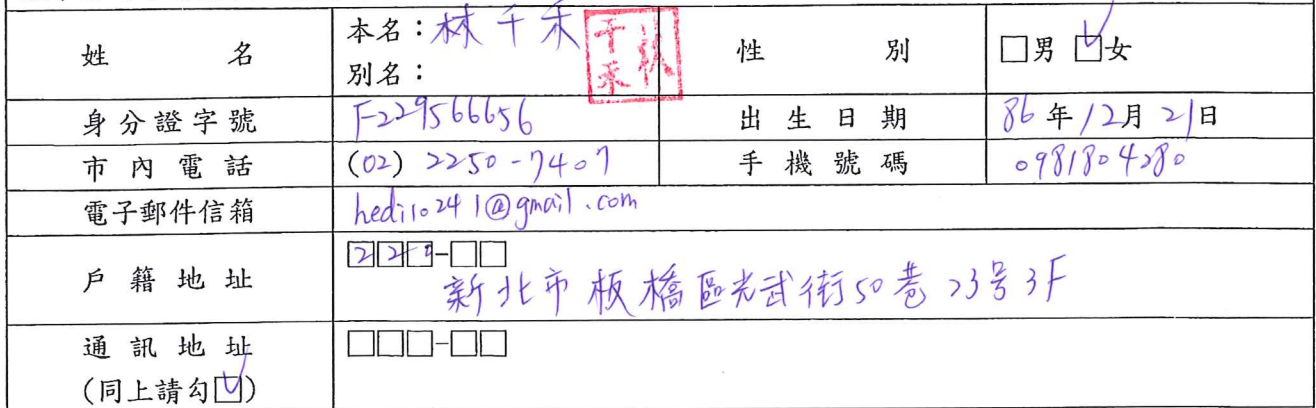 姓 名 本名：林千禾 千禾 林 性 別 □男 ☑女
別名：
身分證字號 F229566656 出生日期 86年12月21日
市內電話 (02) 2250-7407 手機號碼 0981804280
電子郵件信箱 hedi10241@gmail.com
戶籍地址 220-□□
新北市板橋區光武街50巷23号3F
通訊地址 □□□-□□
(同上請勾☑)